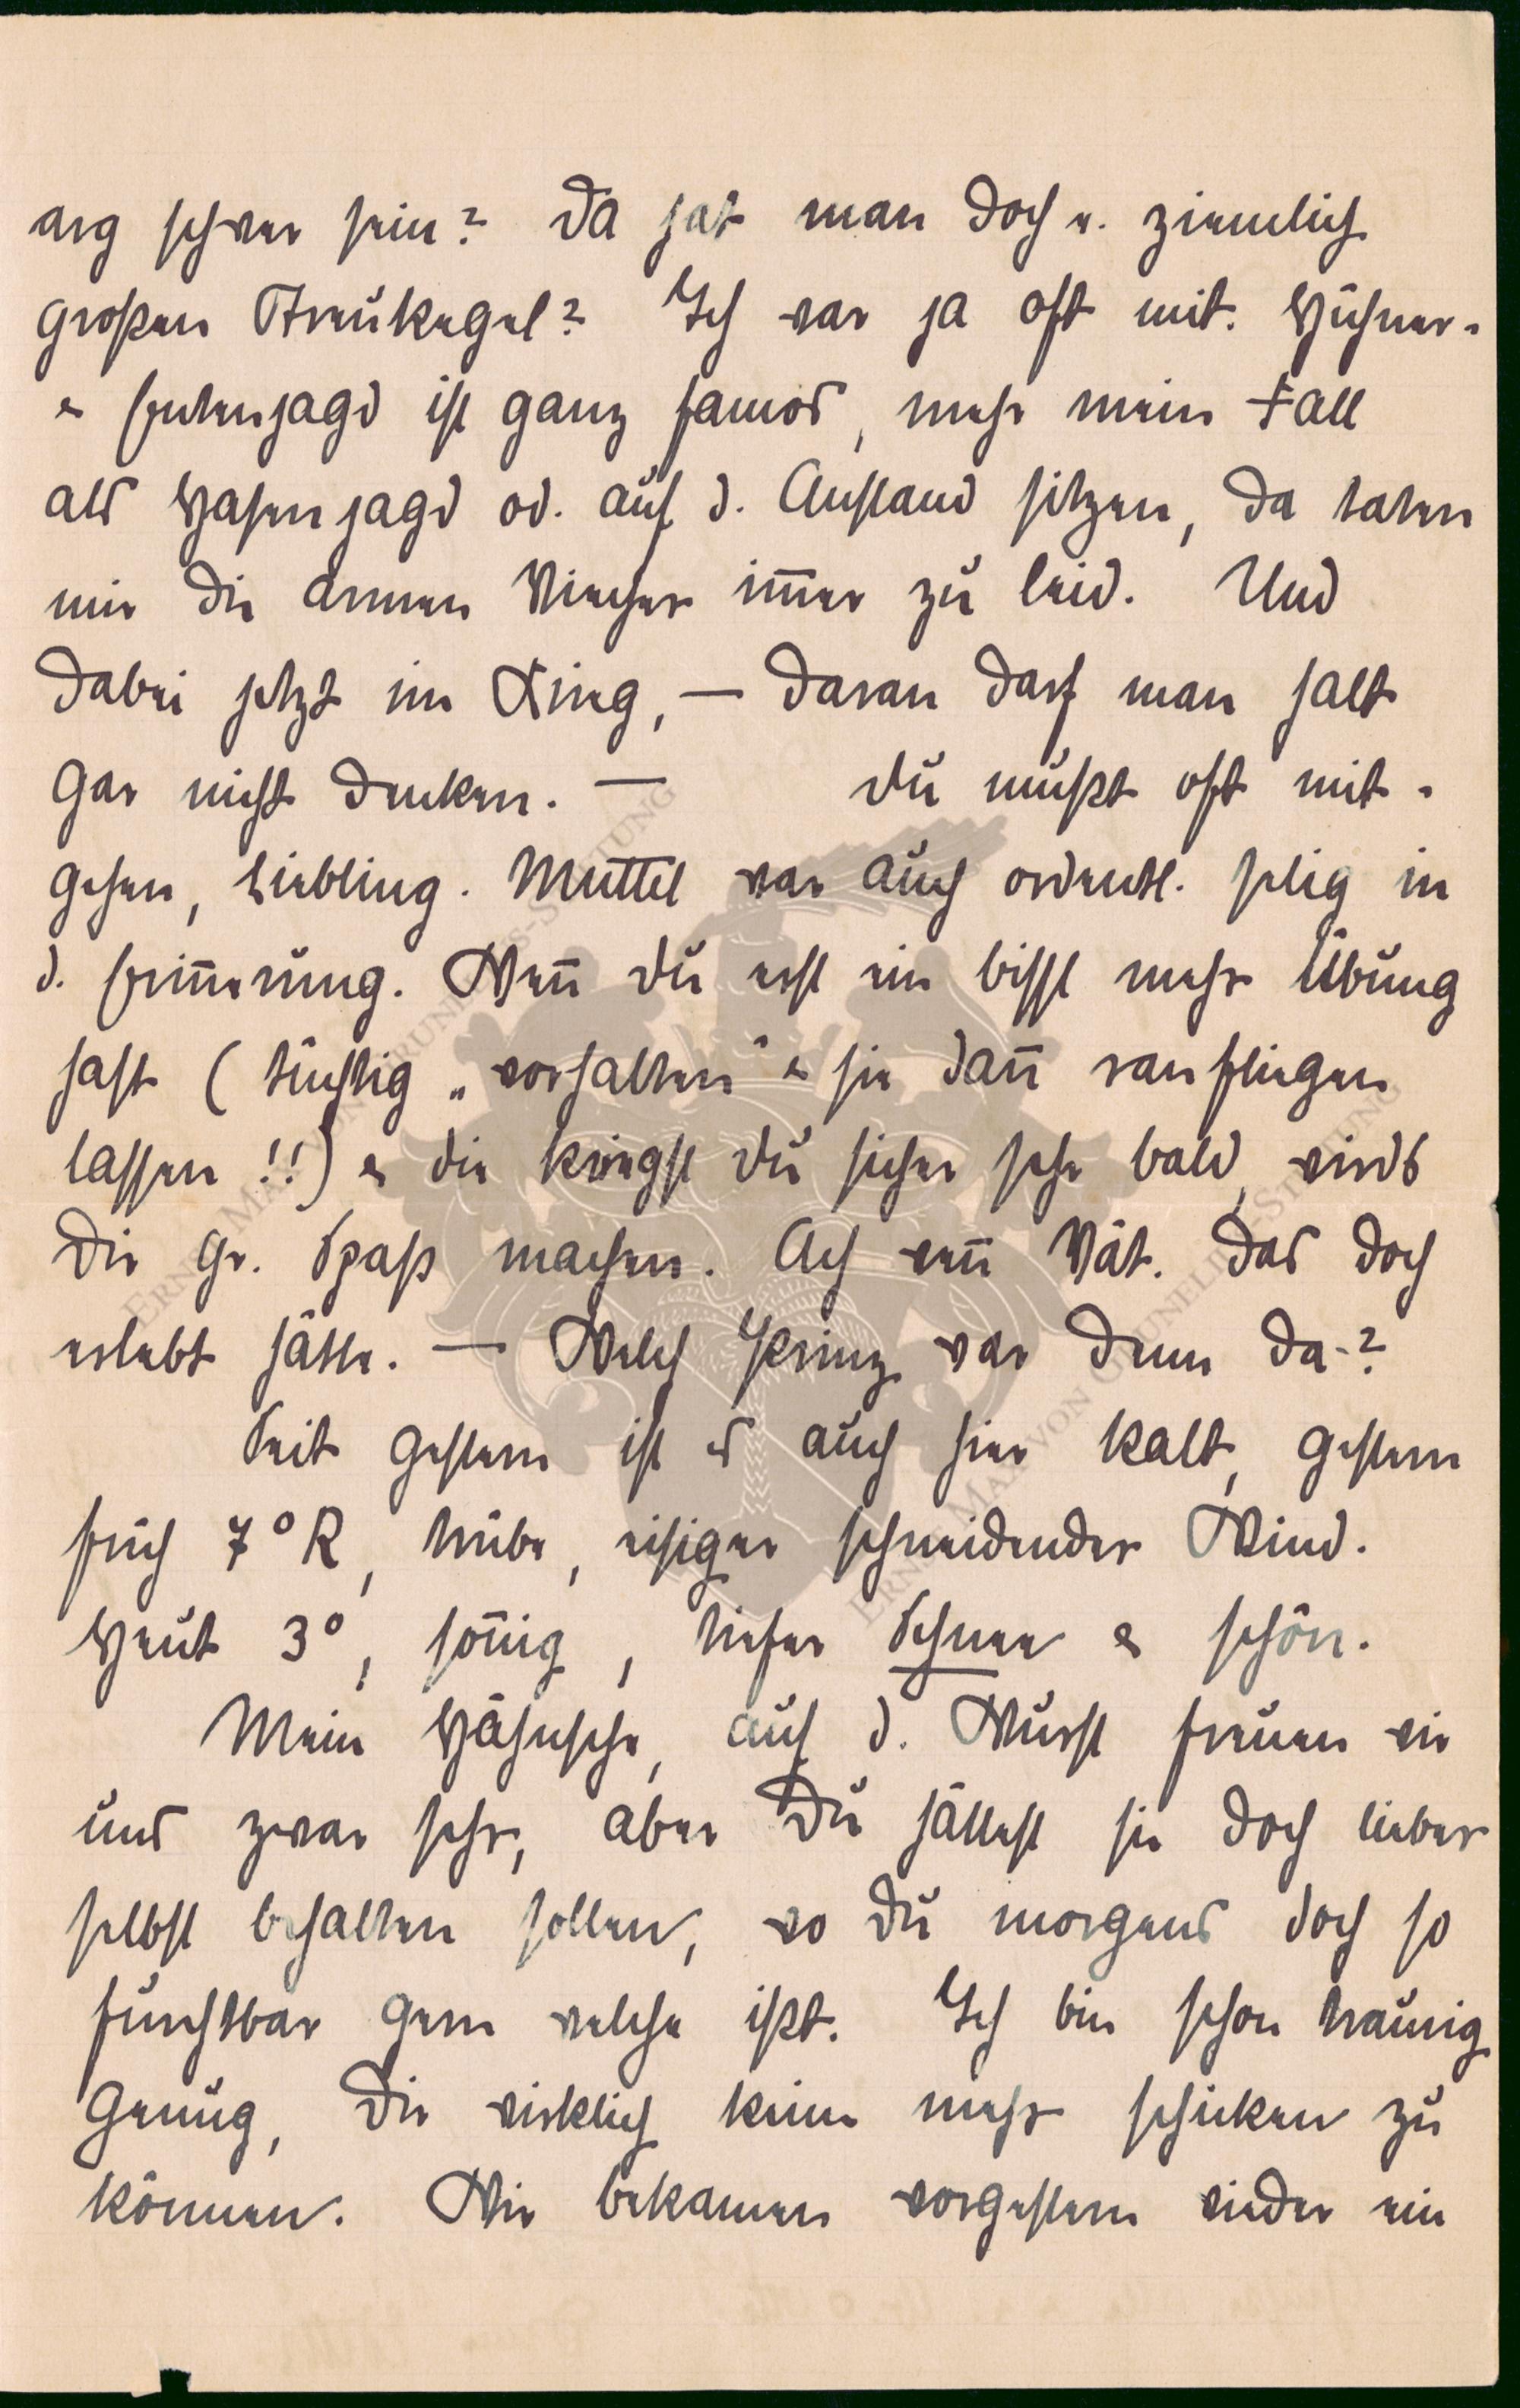 arg schwer sein? Da hat man doch e. ziemlich
großen Streukegel? Ich war ja oft mit. Hühner-
& Entenjagd ist ganz famos, mehr mein Fall
als Hasenjagd od. auf d. Anstand sitzen, da taten
mir die armen Viecher im̅er zu leid. Und
dabei jetzt im Krieg, — daran darf man halt
gar nicht denken. — Du mußt oft mit-
gehen, Liebling. Muttel war auch ordentl. selig in
d. Erin̅erung. Wen̅ Du erst ein bissl mehr Übung
hast (tüchtig „vorhalten“ & sie dan̅ ranfliegen
lassen!!) & die kriegst Du sicher sehr bald, wirds
Dir gr. Spaß machen. Ach wen̅ Vät. das doch
erlebt hätte. — Welch Prinz war denn da-?
Seit gestern ist es auch hier kalt, gestern
früh 7° R, trübe, eisiger schneidender Wind.
Heut 3°, son̅ig, tiefer Schnee & schön.
Mein Hähnsche, auf d. Wurst freuen wir
uns zwar sehr, aber Du hättest sie doch lieber
selbst behalten sollen, wo Du morgens doch so
furchtbar gern welche ißt. Ich bin schon traurig
genug, Dir wirklich keine mehr schicken zu
können. Wir bekamen vorgestern wieder ein
ERNST MAX VON GRUNELIUS-STIFTUNG
ERNST MAX VON GRUNELIUS-STIFTUNG